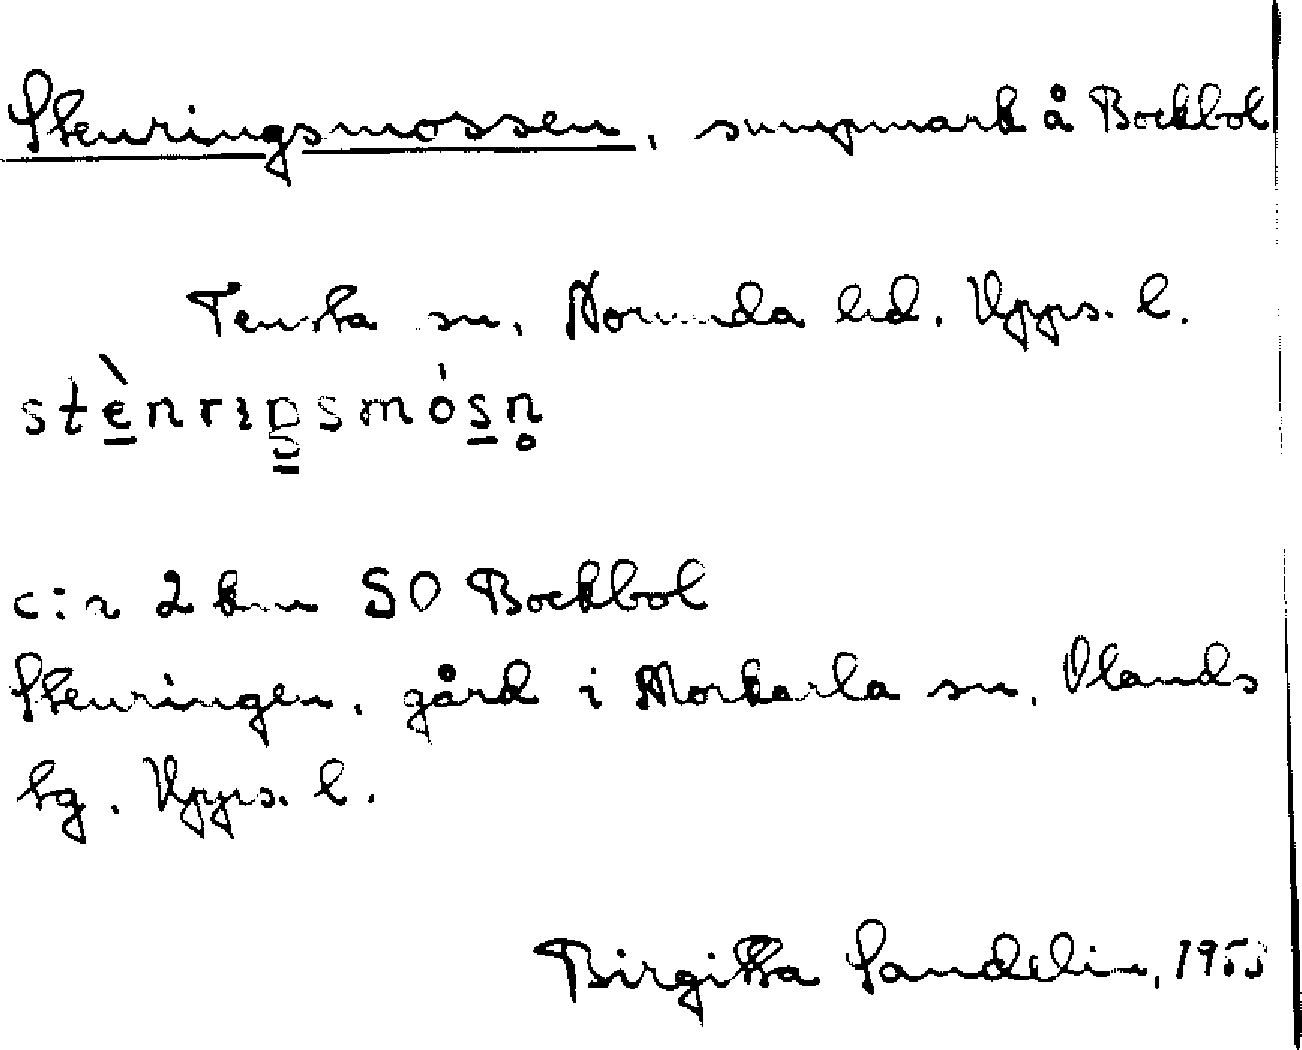 Stenringsmossen, sumpmark å Bockbol
Tensta sn, Norunda hd. Upps. l.
stènrıŋsmósn̥
c:a 2 km SO Bockbol
Stenringen, gård i Morkarla sn, Olands
hg. Upps. l.
Birgitta Sandelin, 1953